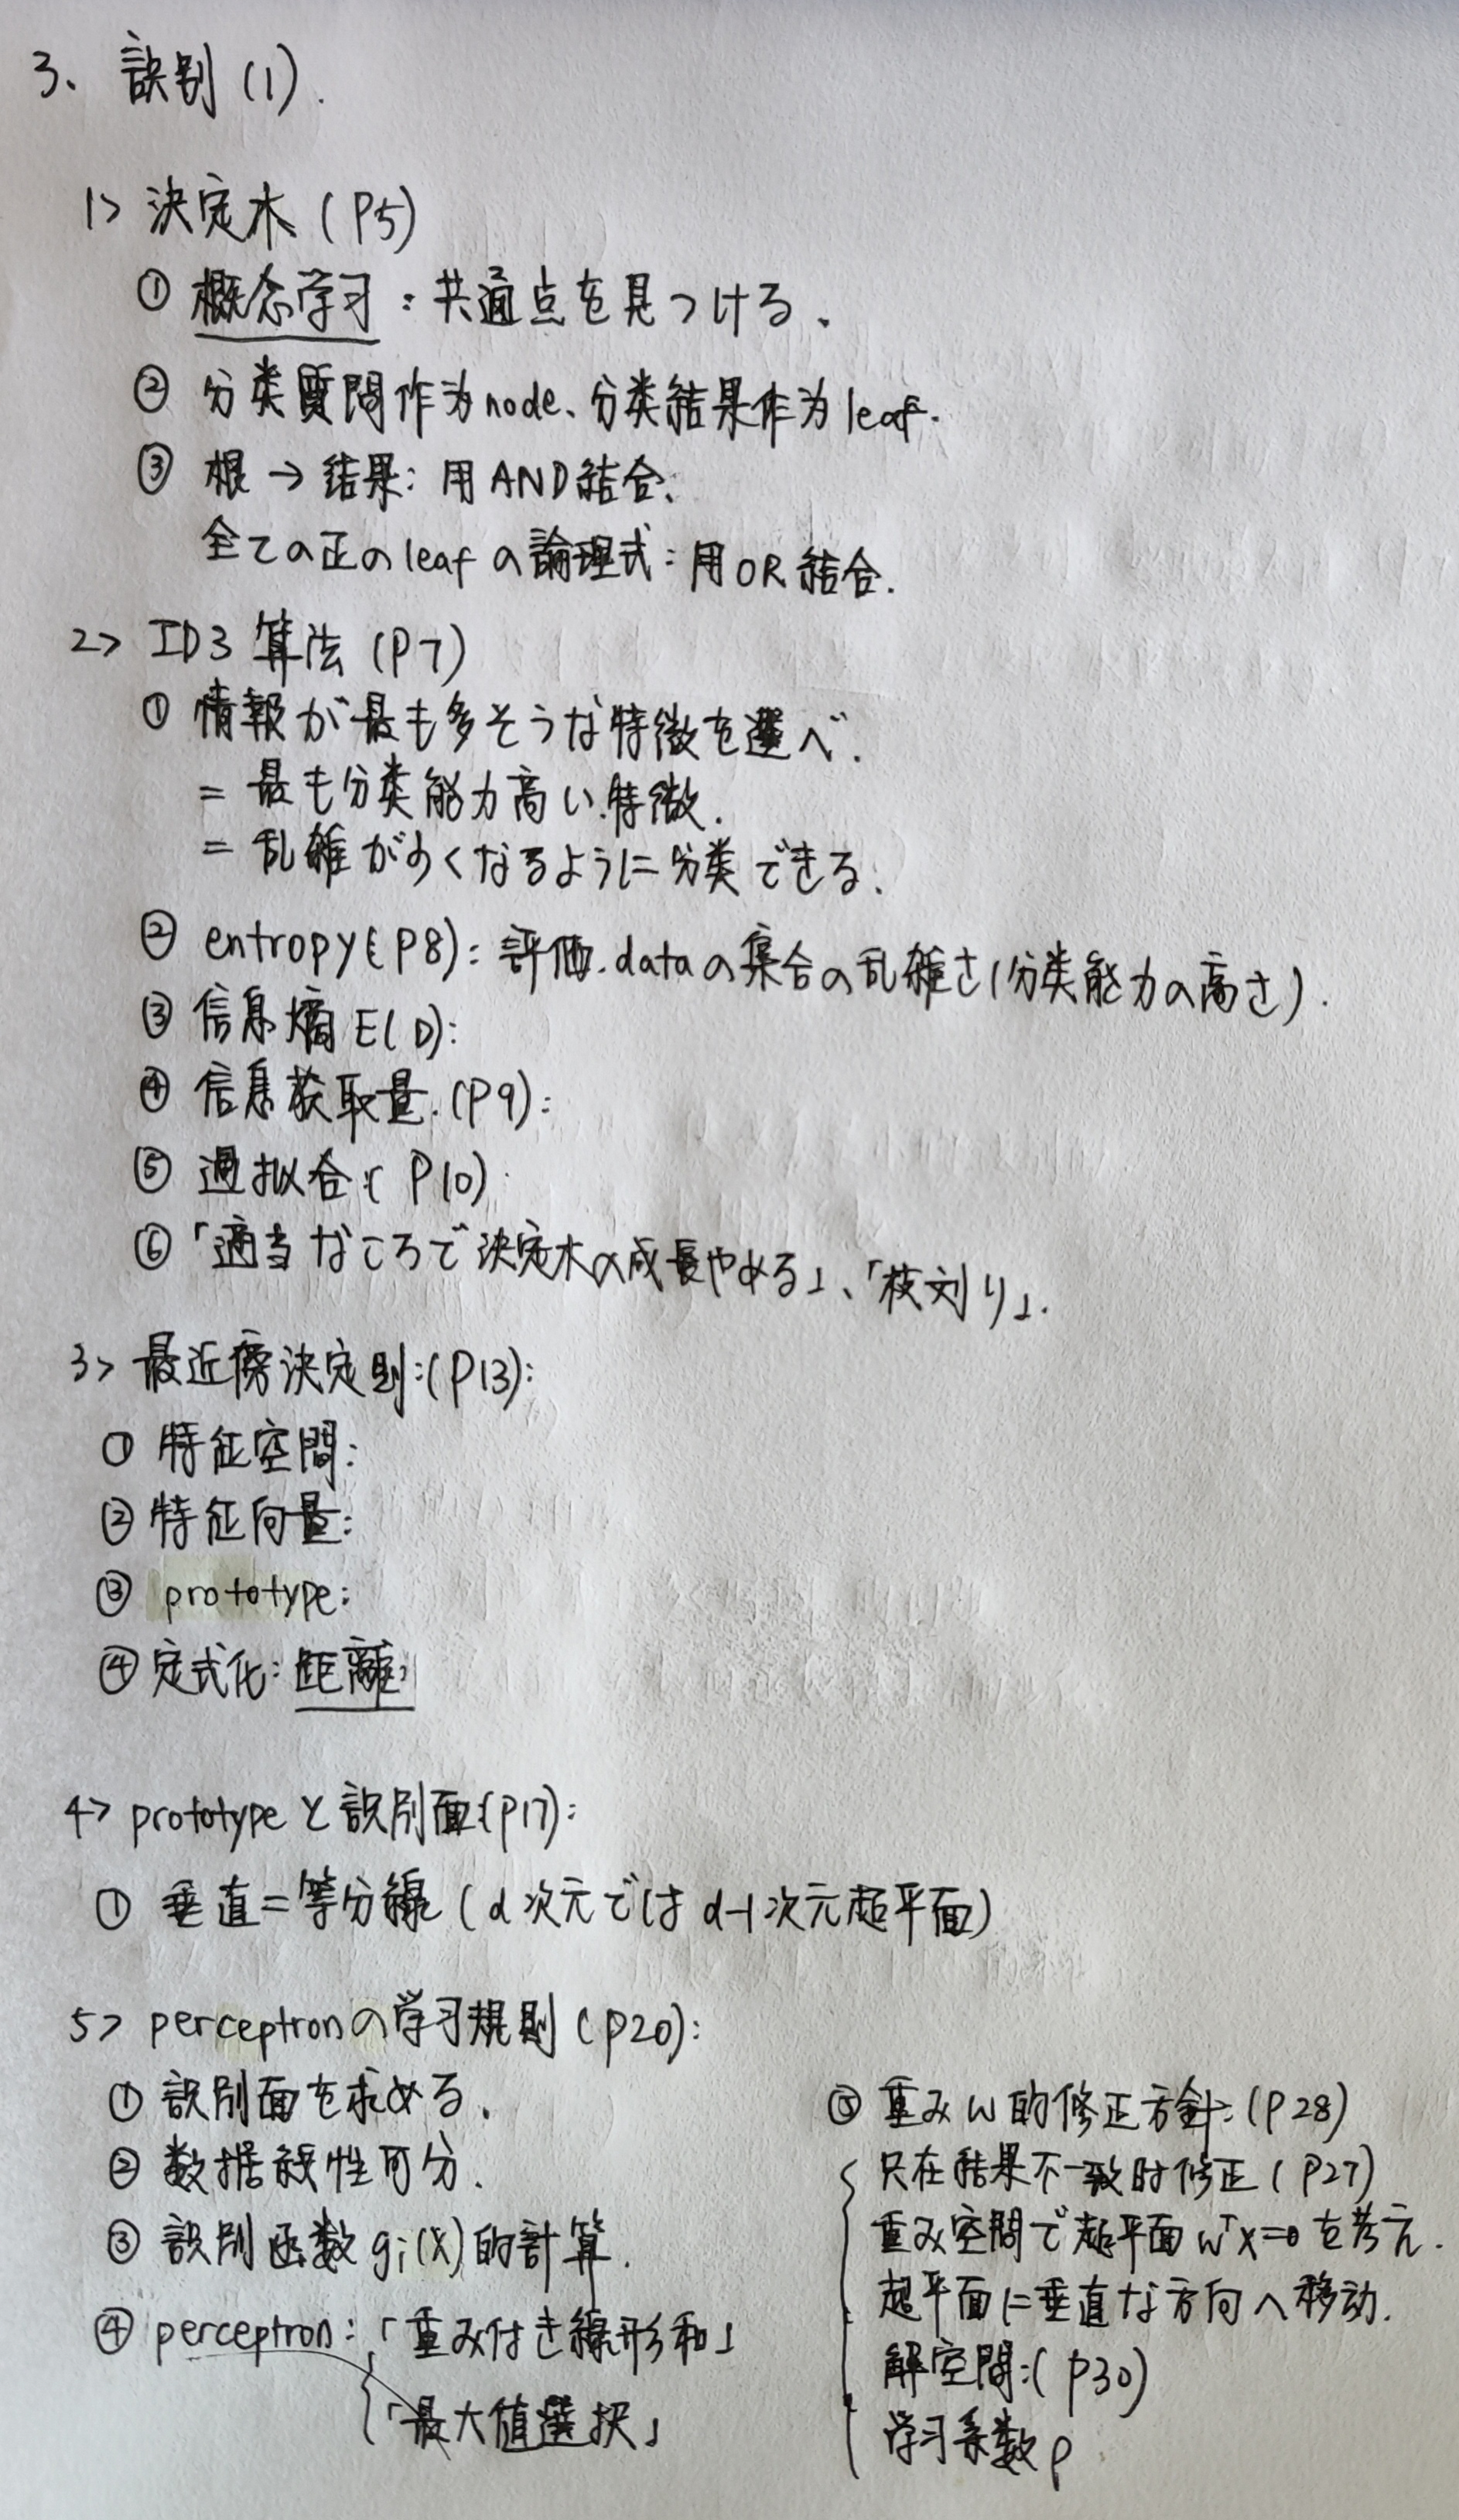 3、識别(1).
1> 決定木(P5)
① 概念学习:共通点を見つける、
② 分类質問作为node、分类結果作为leaf.
③ 根→结果:用AND結合、
全ての正のleafの論理式:用OR結合.
2> ID3 算法(P7)
① 情報が最も多そうな特徴を選べ.
=最も分类能力高い特徴.
=乱雑が少くなるように分类できる.
② entropy(P8):評価.dataの集合の乱雑さ(分类能力の高さ).
③ 信息熵E(D):
④ 信息获取量.(P9):
⑤ 過拟合:(P10)
⑥「適当なころで決定木の成長やめる」、「枝刈り」.
3> 最近傍決定則:(P13):
① 特征空間:
② 特征向量:
③ prototype:
④ 定式化:距離
4> prototypeと識別面:(P17):
① 垂直=等分線(d次元ではd-1次元超平面)
5> perceptronの学习規則(P20):
① 識別面を求める、
② 数据線性可分.
③ 識別函数gi(X)的計算.
④ perceptron:「重み付き線形和」
「最大值選択」
⑤ 重みW的修正方針:(P28)
只在结果不一致时修正(P27)
重み空間で超平面WᵀX=0を考え.
超平面に垂直な方向へ移动.
解空間:(P30)
学习系数ρ